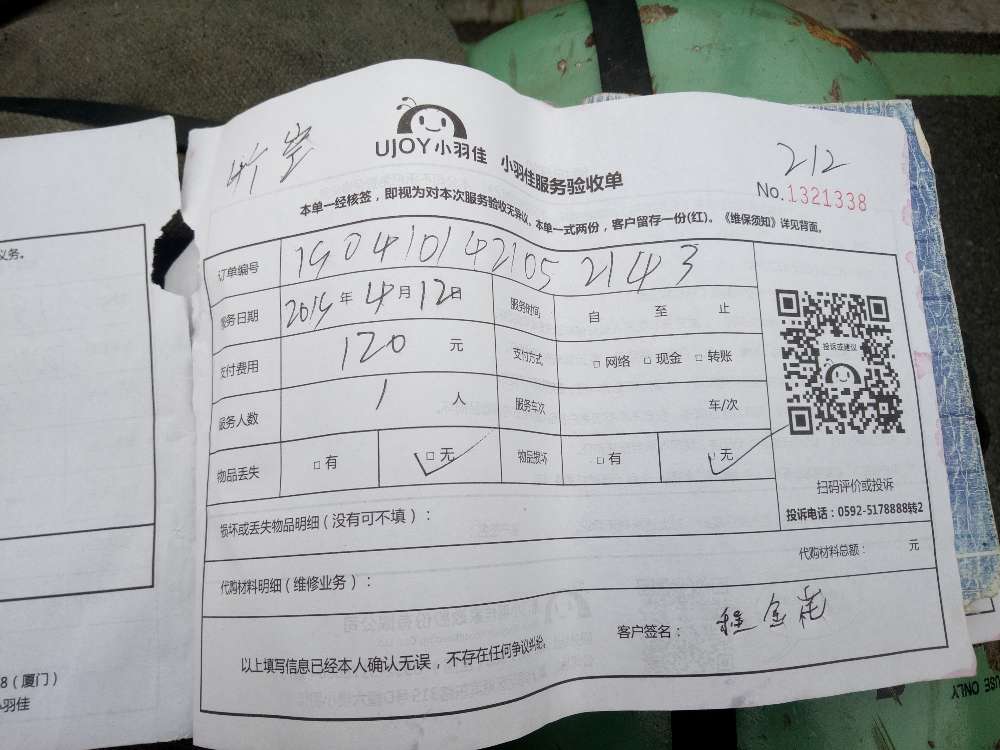 212
UJOY小羽佳 小羽佳服务验收单
No.1321338
本单一经核签，即视为对本次服务验收无异议。本单一式两份，客户留存一份(红)。《维保须知》详见背面。
订单编号 1904101421052143
服务日期 2019年4月12日 服务时间 自 至 止
支付费用 120元 支付方式 □网络 □现金 □转账
服务人数 1人 服务车次 车/次
物品丢失 □有 □无 物品损坏 □有 □无
投诉或建议
扫码评价或投诉
投诉电话：0592-5178888转2
损坏或丢失物品明细（没有可不填）：
代购材料明细（维修业务）：
代购材料总额： 元
以上填写信息已经本人确认无误，不存在任何争议纠纷。
客户签名： 程金花
义务。
8（厦门）
小羽佳
USE ONLY